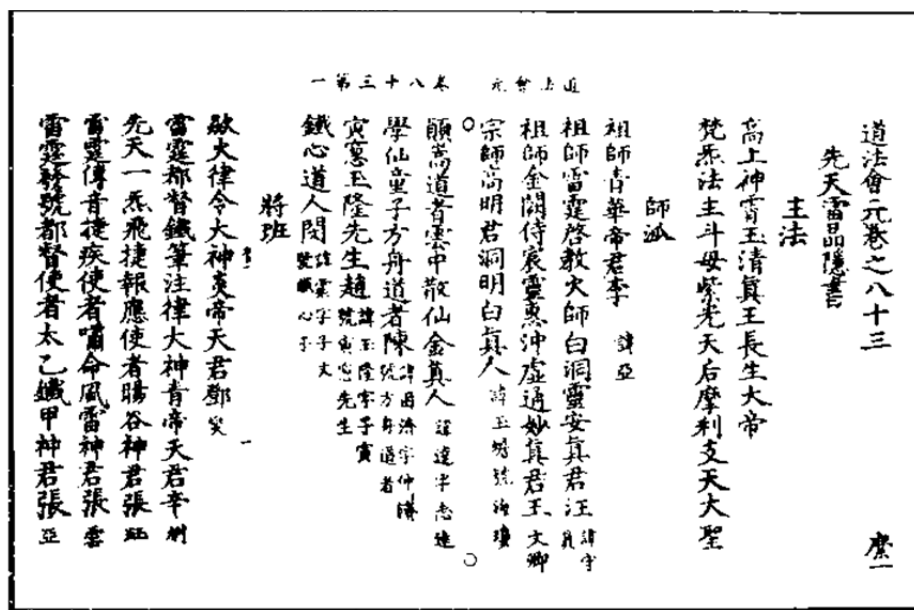 道法會元卷之八十三　縻一
先天雷晶隱書
主法
高上神霄玉清真王長生大帝
梵炁法主斗母紫光天后摩利支天大聖
師派
祖師青華帝君李 諱亞
祖師雷霆啓教大師白洞靈安真君汪 諱守真
祖師金闕侍宸靈惠沖虛通妙真君王 文卿
宗師高明君洞明白真人
道法會元 卷八十三第一
顛嵩道者雲中散仙金真人
學仙童子方舟道者陳 號方舟道者
寅窓玉隆先生趙 諱玉隆字子寅 號寅窓先生
鐵心道人閔 號鐵心子
將班
欻火律令大神炎帝天君鄧 燮
雷霆都督鐵筆注律大神青帝天君辛
先天一炁飛捷報應使者暘谷神君張 玨
雷霆傳音捷疾使者嘯命風雷神君張 雲
雷霆發號都督使者太乙鐵甲神君張 亞